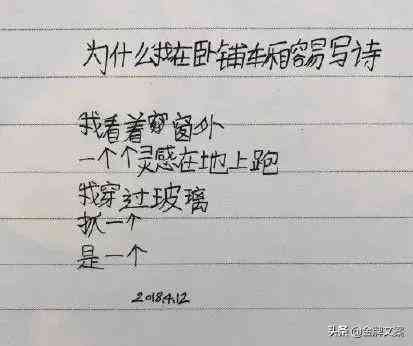 为什么我在卧铺车厢容易写诗
我看着窗外
一个个灵感在地上跑
我穿过玻璃
抓一个
是一个
2018.4.12
头条 @金牌文案